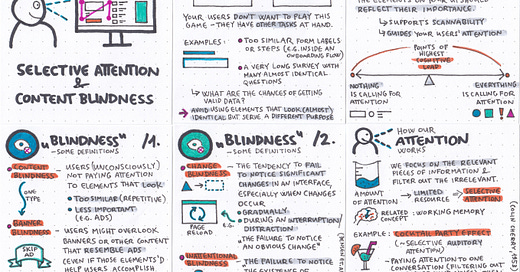 SELECTIVE ATTENTION
&
CONTENT BLINDNESS
YOUR USERS DON'T WANT TO PLAY THIS
GAME – THEY HAVE OTHER TASKS AT HAND.
EXAMPLES:
TOO SIMILAR FORM LABELS
OR STEPS (E.G. INSIDE AN
ONBOARDING FLOW)
A VERY LONG SURVEY WITH
MANY ALMOST IDENTICAL
QUESTIONS
WHAT ARE THE CHANCES OF GETTING
VALID DATA?
AVOID USING ELEMENTS THAT LOOK (ALMOST)
IDENTICAL BUT SERVE A DIFFERENT PURPOSE
REFLECT THEIR IMPORTANCE.
SUPPORTS SCANNABILITY
GUIDES YOUR USERS' ATTENTION
POINTS OF
HIGHEST
COGNITIVE
LOAD
NOTHING
IS CALLING FOR
ATTENTION
EVERYTHING
IS CALLING FOR
ATTENTION
"BLINDNESS" /1.
– SOME DEFINITIONS
CONTENT
BLINDNESS
USERS (UNCONSCIOUSLY)
NOT PAYING ATTENTION
TO ELEMENTS THAT LOOK
TOO SIMILAR (REPETITIVE)
LESS IMPORTANT
(E.G. ADS)
ONE
TYPE
BANNER
BLINDNESS
USERS MIGHT OVERLOOK
BANNERS OR OTHER CONTENT
THAT RESEMBLE ADS
EVEN IF THOSE ELEMENTS'D
HELP USERS ACCOMPLISH
SKIP
AD
"BLINDNESS" /2.
– SOME DEFINITIONS
CHANGE
BLINDNESS
THE TENDENCY TO FAIL
TO NOTICE SIGNIFICANT
CHANGES IN AN INTERFACE,
ESPECIALLY WHEN CHANGES
OCCUR
GRADUALLY
DURING AN INTERRUPTION/
DISTRACTION
PAGE
RELOAD
"THE FAILURE TO NOTICE
AN OBVIOUS CHANGE"
INATTENTIONAL
BLINDNESS
THE FAILURE TO NOTICE
THE EXISTENCE OF
HOW OUR
ATTENTION
WORKS
WE FOCUS ON THE RELEVANT
PIECES OF INFORMATION &
FILTER OUT THE IRRELEVANT.
AMOUNT
OF ATTENTION
LIMITED
RESOURCE
SELECTIVE
ATTENTION
RELATED
CONCEPT
: WORKING MEMORY
EXAMPLE: COCKTAIL PARTY EFFECT
(~SELECTIVE AUDITORY
ATTENTION)
PAYING ATTENTION TO ONE
CONVERSATION (FILTERING OUT